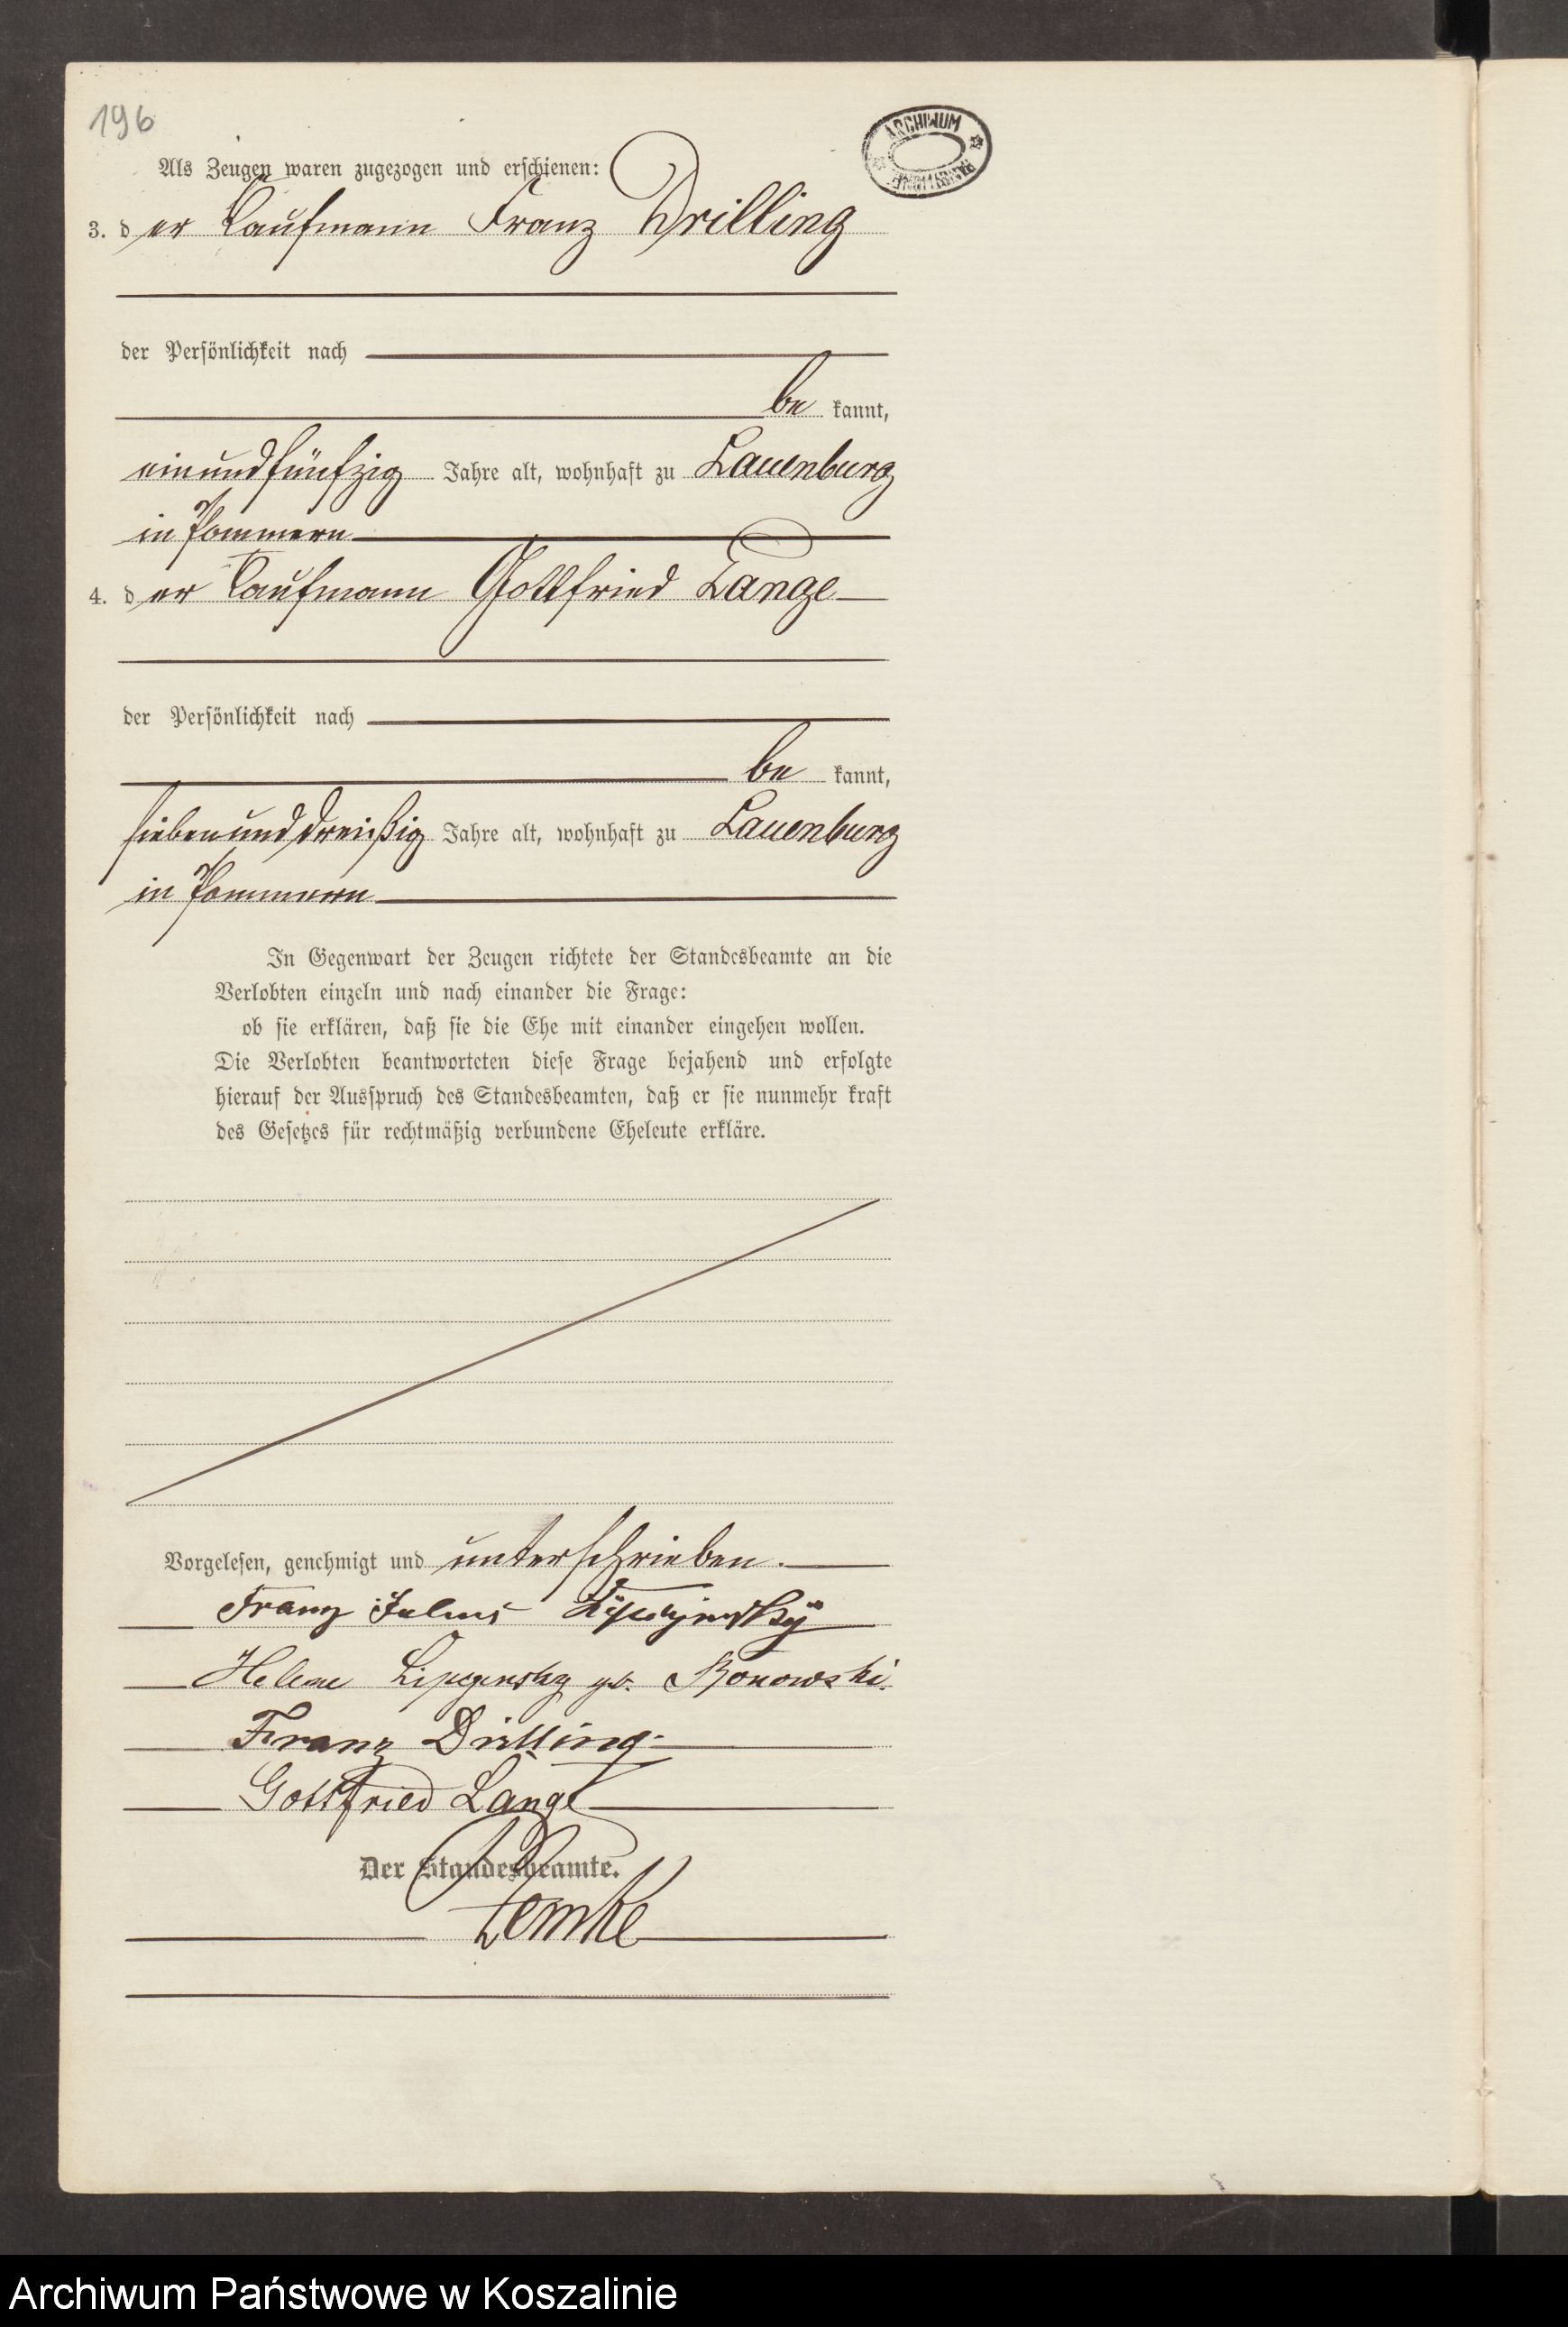 196
ARCHIWUM
Als Zeugen waren zugezogen und erschienen:
3. der Kaufmann Franz Drilling
der Persönlichkeit nach
be kannt,
einundfünfzig Jahre alt, wohnhaft zu Lauenburg
in Pommern
4. der Kaufmann Gottfried Lange
der Persönlichkeit nach
be kannt,
siebenunddreißig Jahre alt, wohnhaft zu Lauenburg
in Pommern
In Gegenwart der Zeugen richtete der Standesbeamte an die
Verlobten einzeln und nach einander die Frage:
ob sie erklären, daß sie die Ehe mit einander eingehen wollen.
Die Verlobten beantworteten diese Frage bejahend und erfolgte
hierauf der Ausspruch des Standesbeamten, daß er sie nunmehr kraft
des Gesetzes für rechtmäßig verbundene Eheleute erkläre.
Vorgelesen, genehmigt und unterschrieben.
Franz Julius
Helene geb.
Franz Drilling.
Gottfried Lange
Der Standesbeamte.
Lemke
Archiwum Państwowe w Koszalinie